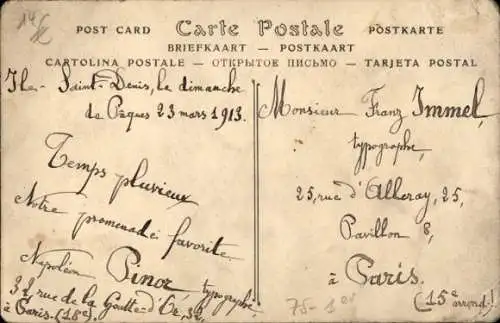 POST CARD Carte Postale POSTKARTE
BRIEFKAART — POSTKAART
CARTOLINA POSTALE — ОТКРЫТОЕ ПИСЬМО — TARJETA POSTAL
Ile-Saint-Denis, le dimanche
de Pâques 23 mars 1913.
Temps pluvieux
Notre promenade favorite
Napoléon Pinoz typographe,
32, rue de la Goutte-d'Or, 32,
à Paris. (18e)
Monsieur Franz Immel,
typographe,
25, rue d'Alleray, 25,
Pavillon 8,
à Paris.
(15e arrond.)
75-18e